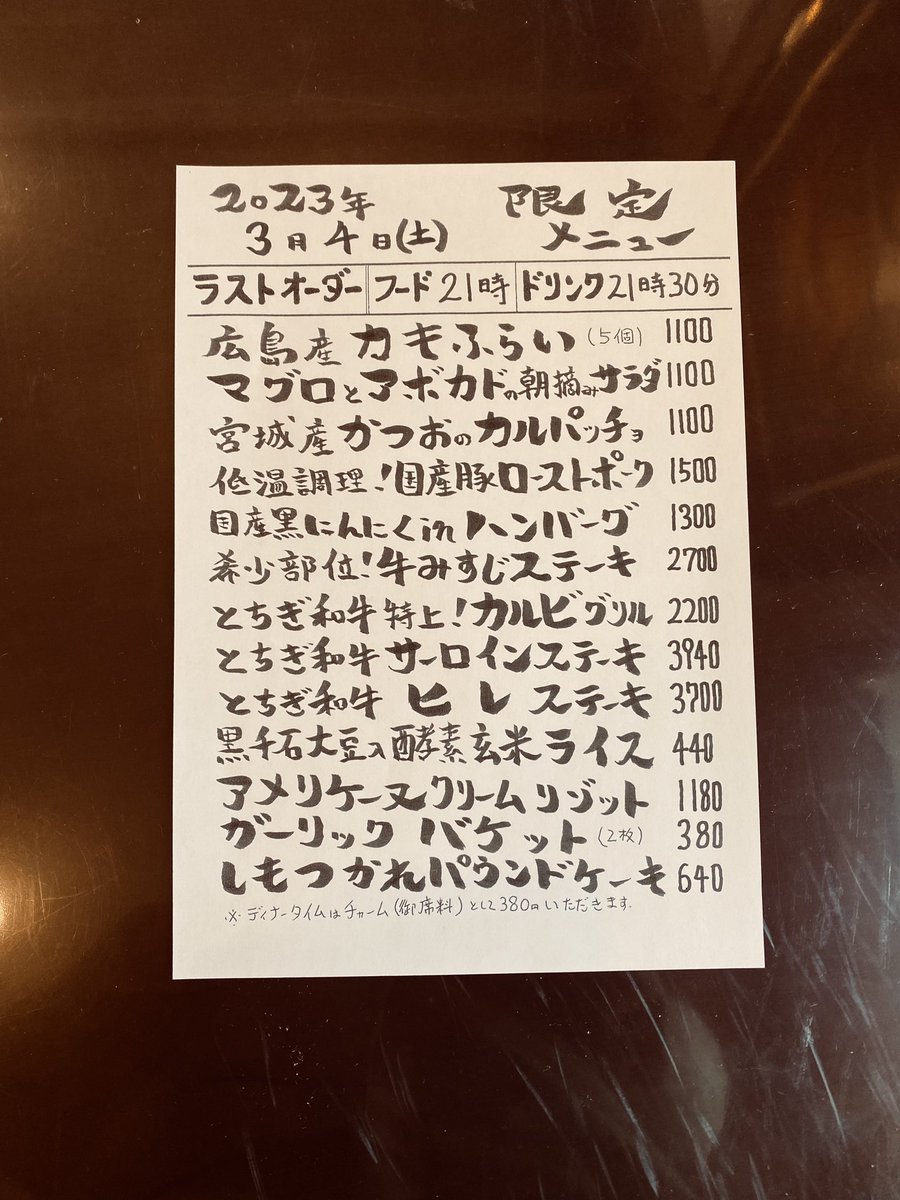 2023年 限定
3月4日(土) メニュー
ラストオーダー フード21時 ドリンク21時30分
広島産カキふらい(5個) 1100
マグロとアボカドの朝摘みサラダ 1100
宮城産かつおのカルパッチョ 1100
低温調理!国産豚ローストポーク 1500
国産黒にんにくinハンバーグ 1300
希少部位!牛みすじステーキ 2700
とちぎ和牛特上!カルビグリル 2200
とちぎ和牛サーロインステーキ 3940
とちぎ和牛ヒレステーキ 3700
黒千石大豆入酵素玄米ライス 440
アメリケーヌクリームリゾット 1180
ガーリックバケット(2枚) 380
しもつかれパウンドケーキ 640
※ディナータイムはチャーム(御席料)として380円いただきます。